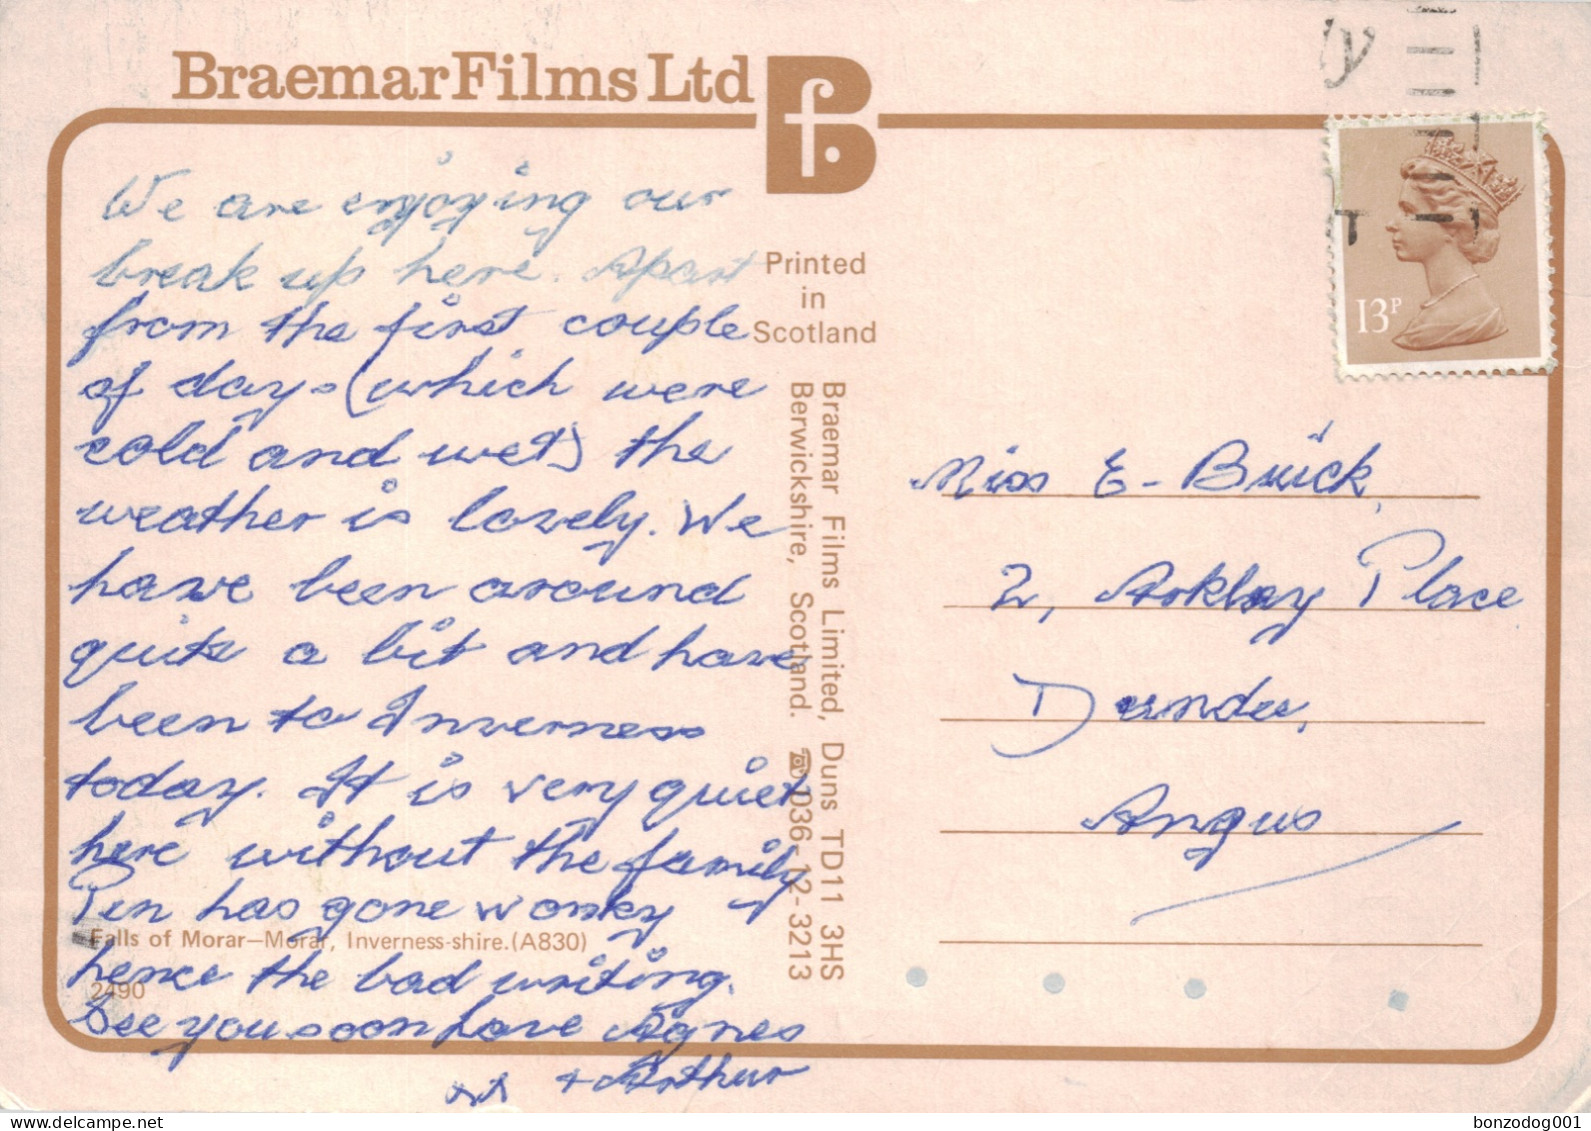 Braemar Films Ltd
Bf.
y
13P
We are enjoying our
break up here. Apart
from the first couple
of days (which were
cold and wet) the
weather is lovely. We
have been around
quite a bit and have
been to Inverness
today. It is very quiet
here without the family
Pen has gone wonky
hence the bad writing.
See you soon love Agnes
+ Arthur
Falls of Morar—Morar, Inverness-shire.(A830)
2490
Printed
in
Scotland
Braemar Films Limited, Duns TD11 3HS
Berwickshire, Scotland. ☎ 036-12-3213
Miss E. Buick,
2, Arklay Place
Dundee,
Angus
delcampe.net
bonzodog001